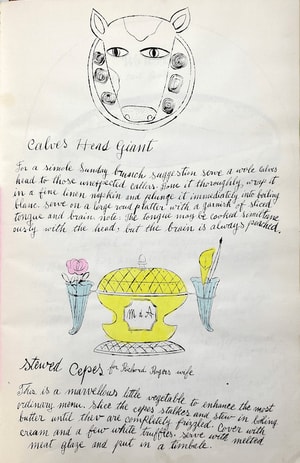 Calves Head Giant
For a simole Sunday brunch suggestion serve a wole calves
head to those unexpected callers. Bone it thoroughly, wrap it
in a fine linen napkin and plunge it immediately into boiling
blanc. serve on a large round platter with a garnish of sliced
tongue and brain. note: The tongue may be cooked simultane
ously with the head, but the brain is always poached.
M & A
Stewed Cepes for Richard Rogers wife
This is a marvellous little vegetable to enhance the most
ordinary menu. Slice the cepes stalkes and stew in boiling
butter until thier are completely frizzled. Cover with
cream and a few white truffles. serve with melted
meat glaze and put in a timbale.